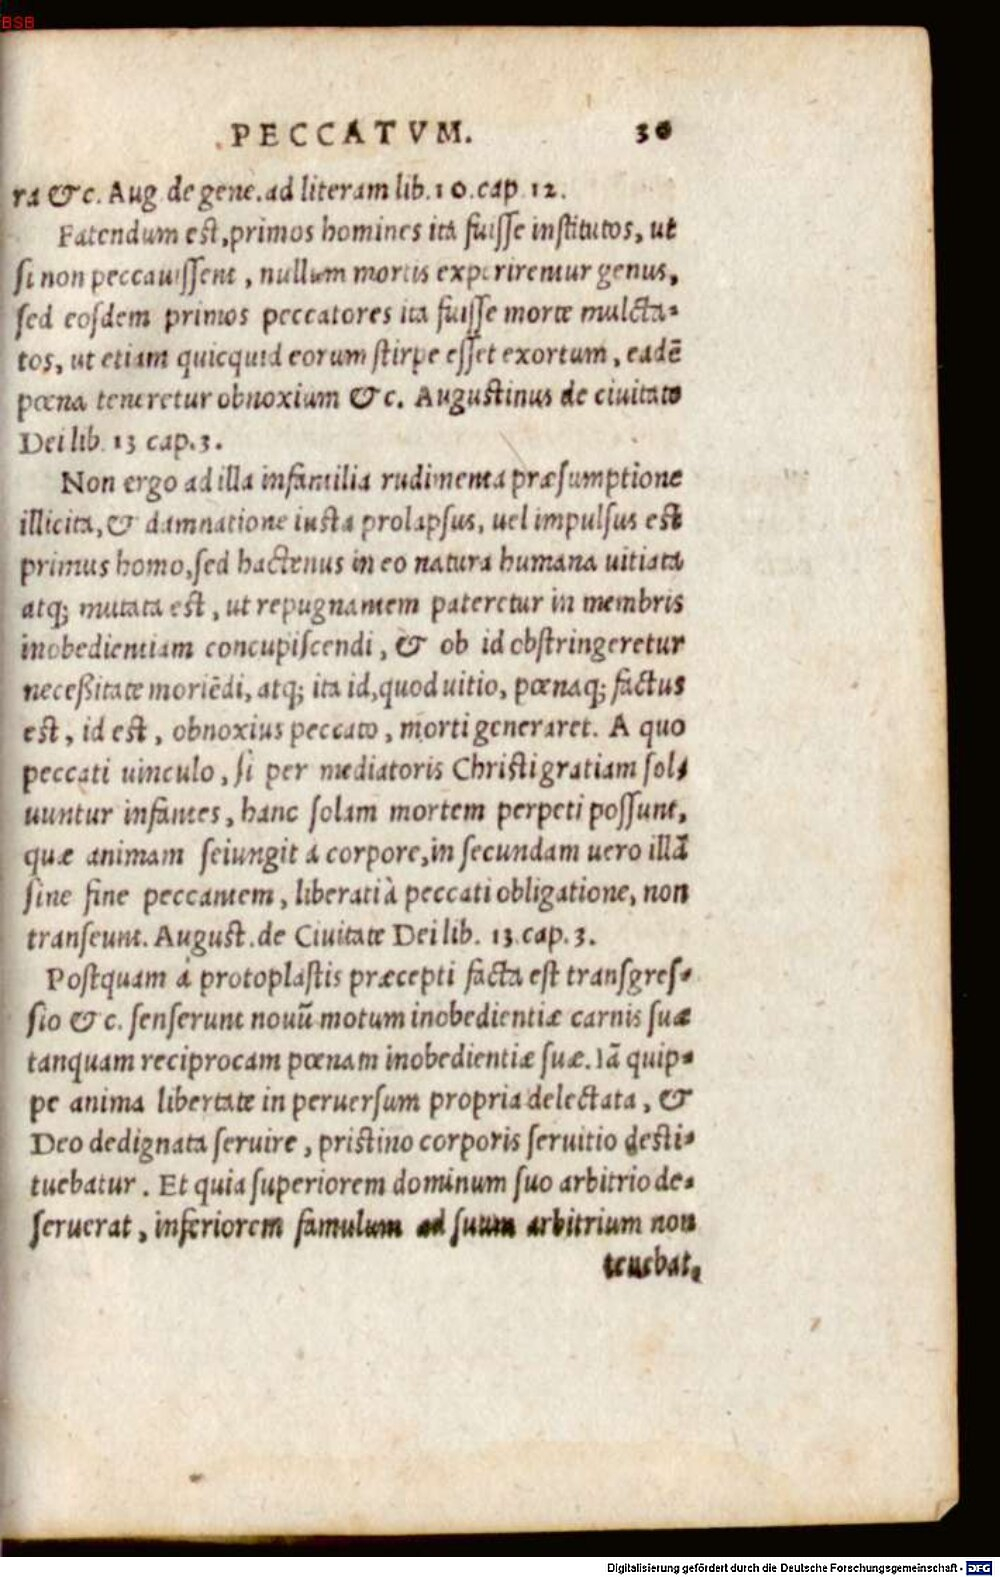 BSB
PECCATVM. 30
ra &c. Aug de gene. ad literam lib. 10. cap 12.
Fatendum est, primos homines ita fuisse institutos, ut
si non peccauissent, nullum mortis experirentur genus,
sed eosdem primos peccatores ita fuisse morte mulcta-
tos, ut etiam quicquid eorum stirpe esset exortum, eadē
pœna teneretur obnoxium &c. Augustinus de ciuitate
Dei lib. 13 cap. 3.
Non ergo ad illa infantilia rudimenta præsumptione
illicita, & damnatione iusta prolapsus, uel impulsus est
primus homo, sed hactenus in eo natura humana uitiata
atq; mutata est, ut repugnantem pateretur in membris
inobedientiam concupiscendi, & ob id obstringeretur
neceßitate moriēdi, atq; ita id, quod uitio, pœnaq; factus
est, id est, obnoxius peccato, morti generaret. A quo
peccati uinculo, si per mediatoris Christi gratiam sol-
uuntur infantes, hanc solam mortem perpeti possunt,
quæ animam seiungit a corpore, in secundam uero illā
sine fine peccantem, liberati à peccati obligatione, non
transeunt. August. de Ciuitate Dei lib. 13. cap. 3.
Postquam à protoplastis præcepti facta est transgres-
sio &c. senserunt nouū motum inobedientiæ carnis suæ
tanquam reciprocam pœnam inobedientiæ suæ. Iā quip-
pe anima libertate in peruersum propria delectata, &
Deo dedignata seruire, pristino corporis seruitio desti-
tuebatur. Et quia superiorem dominum suo arbitrio de-
seruerat, inferiorem famulum ad suum arbitrium non
tenebat,
Digitalisierung gefördert durch die Deutsche Forschungsgemeinschaft - DFG